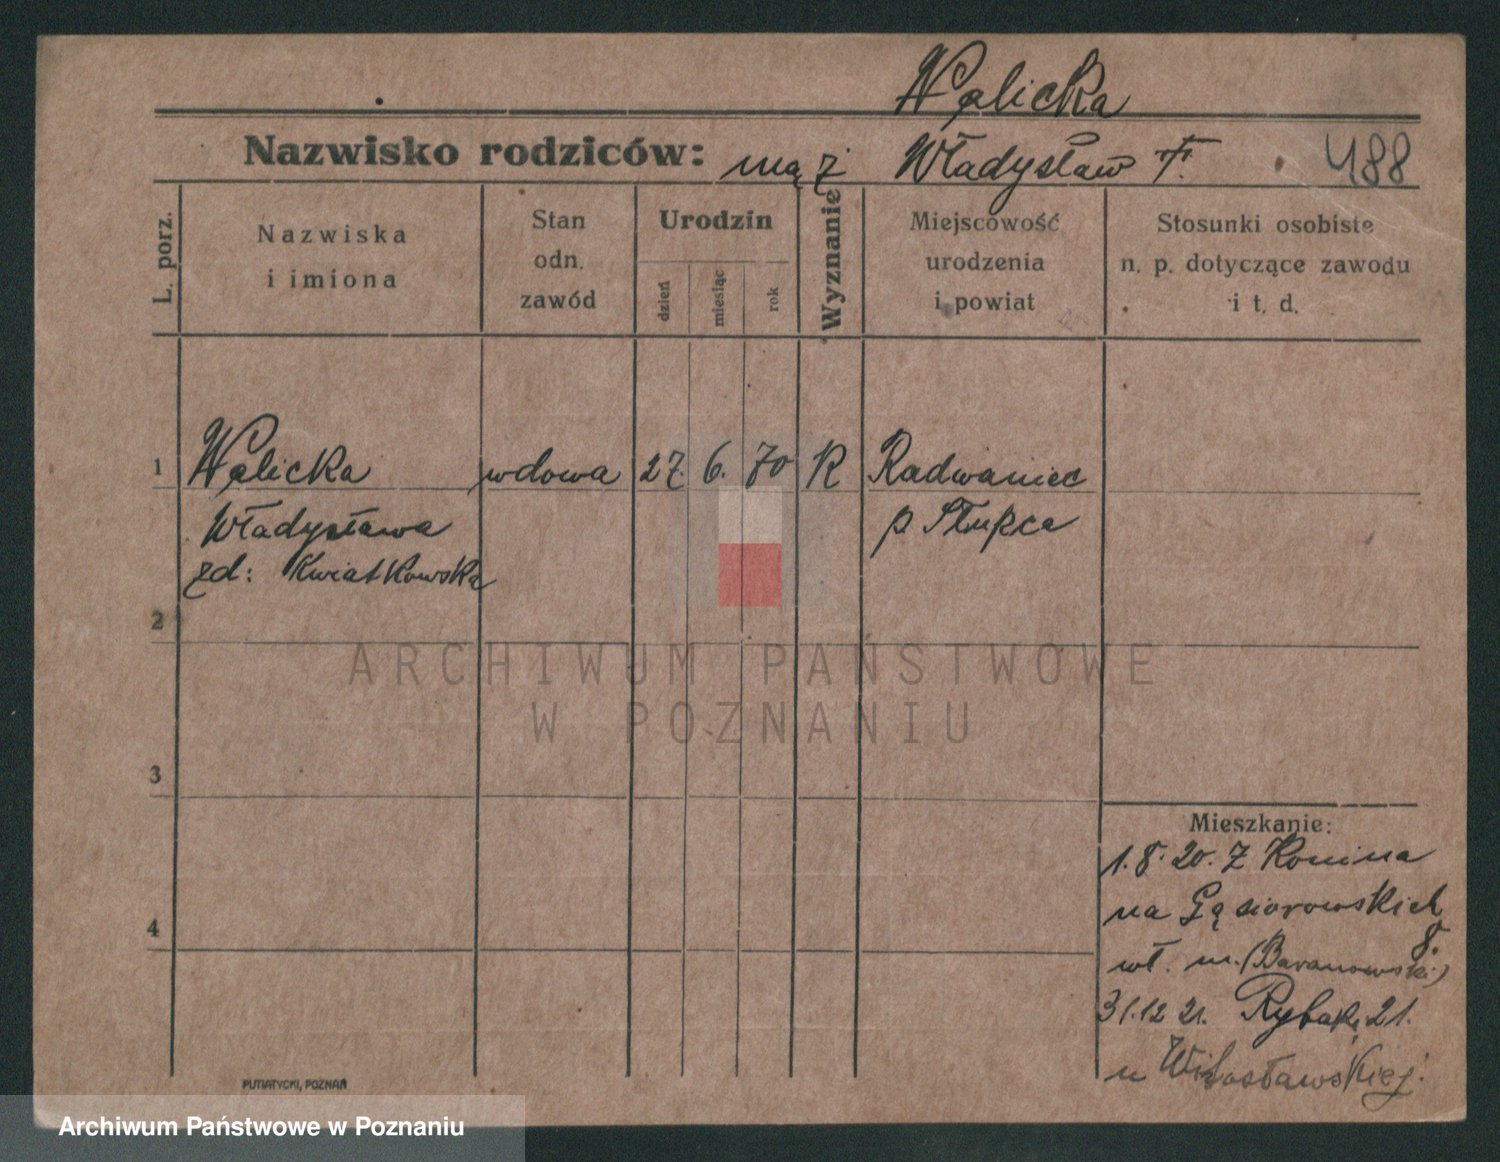 Walicka
Nazwisko rodziców: mąż Władysław F. 488
L. porz.
Nazwiska
i imiona
Stan
odn.
zawód
Urodzin
dzień
miesiąc
rok
Wyznanie
Miejscowość
urodzenia
i powiat
Stosunki osobiste
n. p. dotyczące zawodu
i t. d.
1 Walicka wdowa 27. 6. 70 R Radwaniec
Władysława p Słupca
zd: Kwiatkowska
2
3
4
Mieszkanie:
1.8.20. Z Konina
na Gąsiorowskich
8.
wł. m. (Baranowski)
31.12 21. Rybaki 21.
u
PUTIATYCKI, POZNAŃ
ARCHIWUM PAŃSTWOWE
W POZNANIU
Archiwum Państwowe w Poznaniu